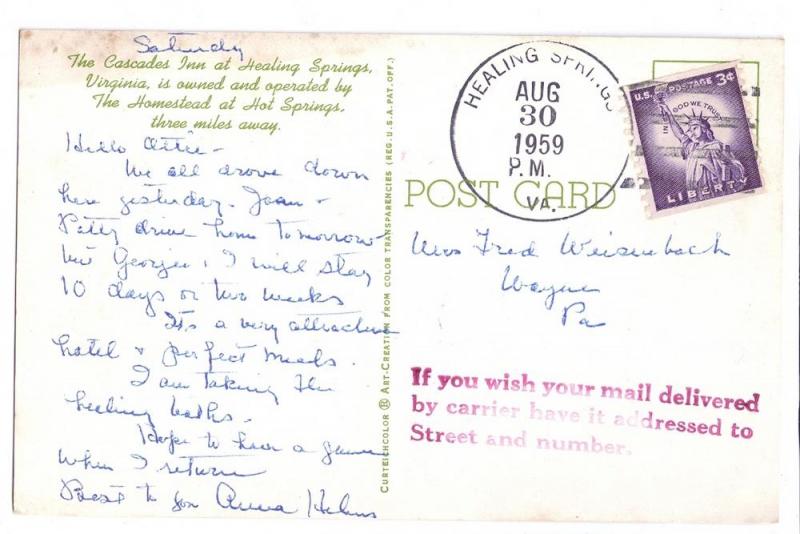 Saturday
The Cascades Inn at Healing Springs,
Virginia, is owned and operated by
The Homestead at Hot Springs,
three miles away.
Hello Ottie -
We all drove down
here yesterday. Joan +
Patty drive home tomorrow
but George + I will stay
10 days or two weeks
It's a very attractive
hotel + perfect meals.
I am taking the
healing baths.
Hope to have a game
when I return
Best to you Anna Helms
CURTEICHCOLOR ® ART-CREATION FROM COLOR TRANSPARENCIES (REG. U.S.A. PAT. OFF.)
HEALING SPRINGS
AUG
30
1959
P.M.
VA.
U.S. POSTAGE 3¢
IN GOD WE TRUST
LIBERTY
POST CARD
Mrs Fred Weisenbach
Wayne
Pa
If you wish your mail delivered
by carrier have it addressed to
Street and number.